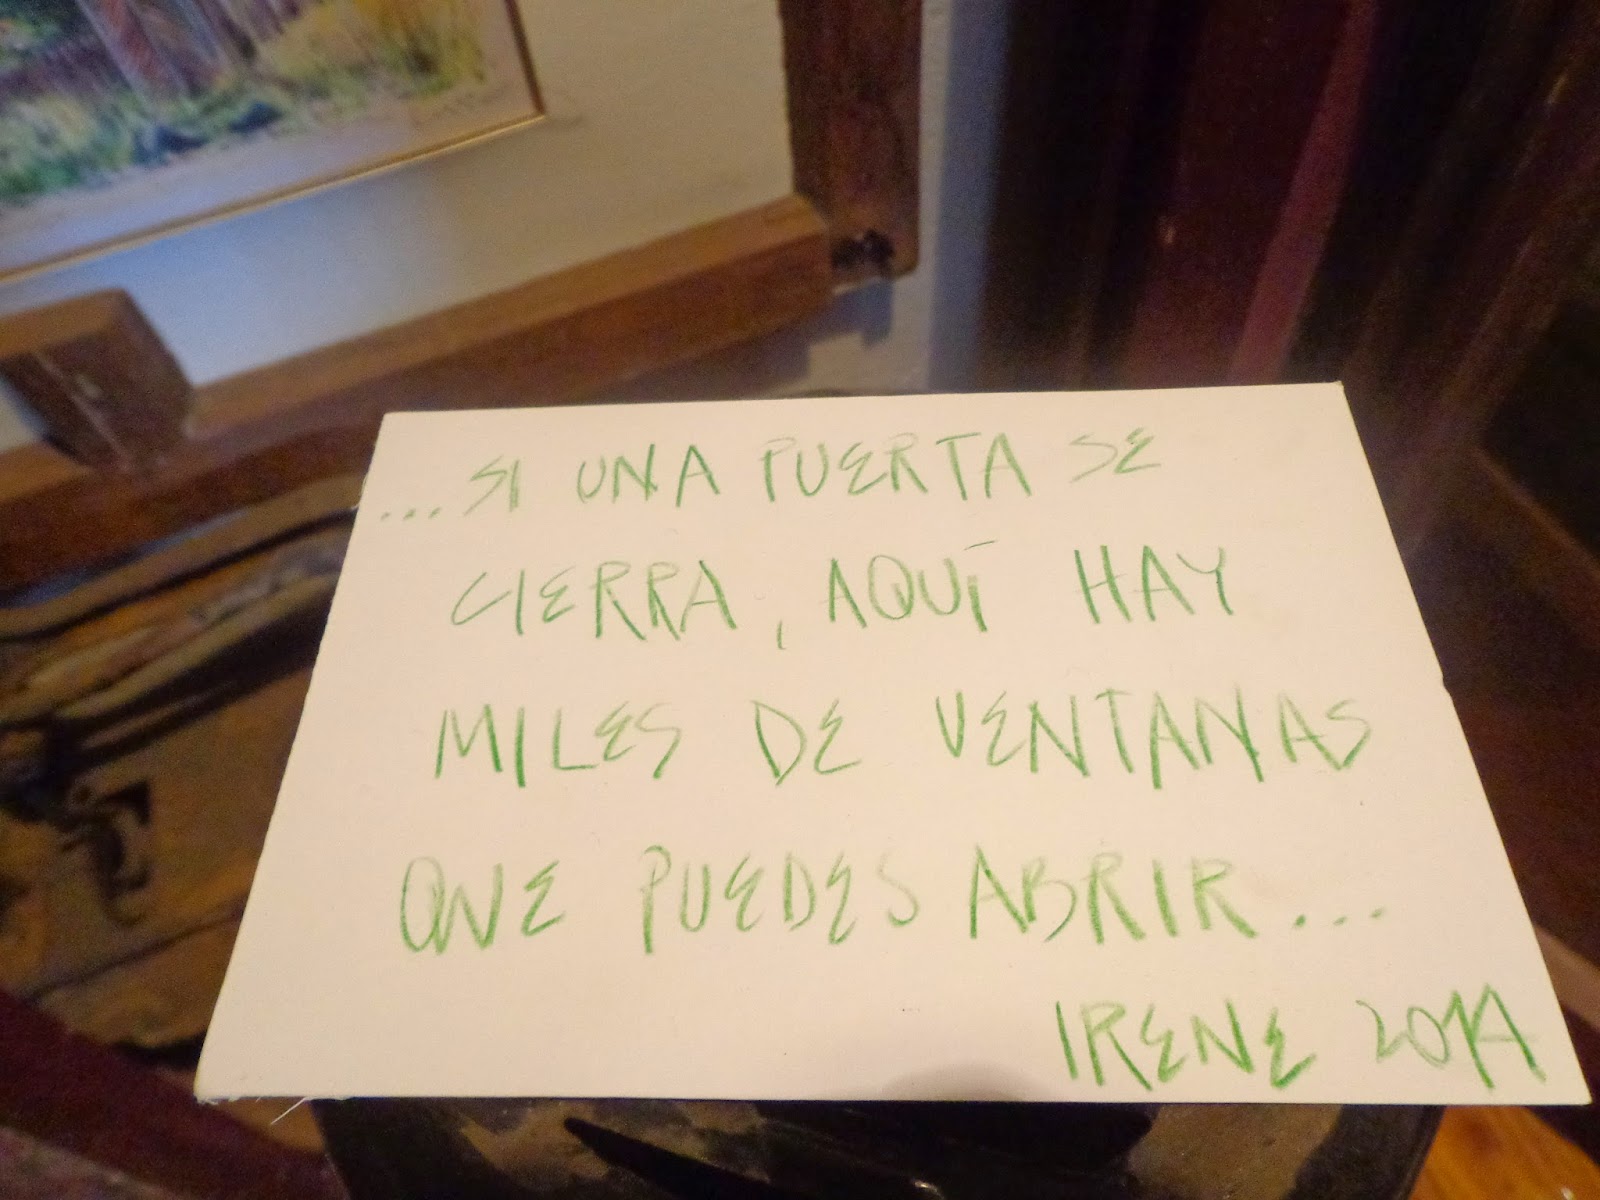 ...SI UNA PUERTA SE
CIERRA, AQUÍ HAY
MILES DE VENTANAS
QUE PUEDES ABRIR...
IRENE 2014